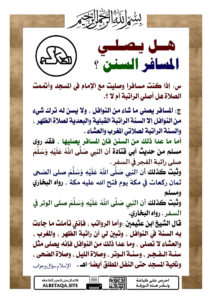 بسم الله الرحمن الرحيم
هل يصلي
المسافر السنن ؟
س: إذا كنت مسافرا وصليت مع الإمام في المسجد وأتممت
الصلاة هل أصلي الراتبة أم لا ؟.
ج: المسافر يصلي ما شاء من النوافل ، ولا يسن له ترك شيء
من النوافل إلا السنة الراتبة القبلية والبعدية لصلاة الظهر ،
والسنة الراتبة لصلاتي المغرب والعشاء .
أما ما عدا ذلك من السنن فإن المسافر يصليها ، فقد روى
مسلم من حديث أبي قتادة أن النبي صَلَّى اللهُ عَلَيْهِ وَسَلَّمَ
صلى راتبة الفجر في السفر .
وثبت كذلك أن النبي صَلَّى اللهُ عَلَيْهِ وَسَلَّمَ صلى الضحى
ثمان ركعات في مكة يوم فتح الله عليه مكة . رواه البخاري
ومسلم .
وثبت كذلك أن النبي صَلَّى اللهُ عَلَيْهِ وَسَلَّمَ صلى الوتر في
السفر . رواه البخاري.
قال الشيخ ابن عثيمين :وأما الرواتب ، فإنني تأملت ما جاءت
به السنة في النوافل ، وتبين لي أن راتبة الظهر ، والمغرب ،
والعشاء لا تصلى ، وما عدا ذلك من النوافل فإنه يصلى مثل
سنة الفجر ، وسنة الوتر ، وصلاة الليل ، وصلاة الضحى ،
وتحية المسجد حتى النفل المطلق أيضاً اهـ
الإسلام سؤال وجواب
ALBETAQA.SITE